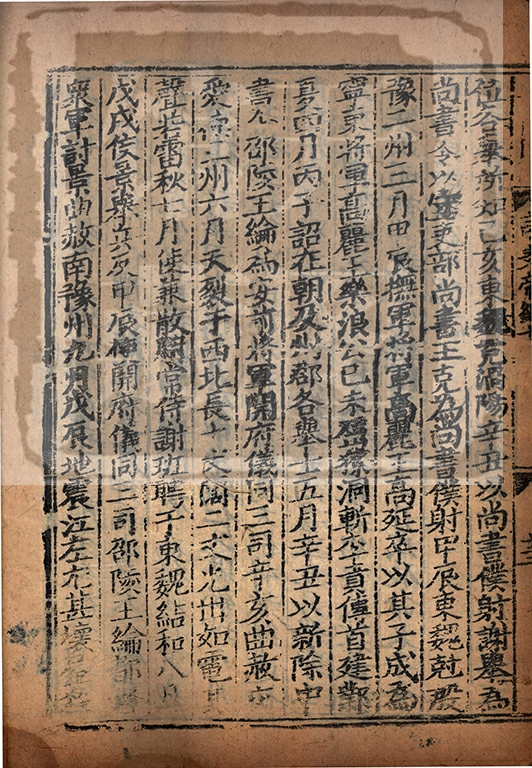 位各舉所知己亥東魏克渦陽辛丑以尚書僕射謝舉為
尚書令以守吏部尚書王克為尚書僕射甲辰東魏克殷
豫二州三月甲辰撫軍將軍高麗王高延卒以其子成為
寧東將軍高麗王樂浪公己未屈獠洞斬李賁傳首建鄴
夏四月丙子詔在朝及州郡各舉士五月辛丑以新除中
書令邵陵王綸為安前將軍開府儀同三司辛亥曲赦交
愛德三州六月天裂于西北長十丈闊二丈光出如電其
聲若雷秋七月使兼散騎常侍謝班聘于東魏結和八月
戊戌侯景舉兵反甲辰使開府儀同三司邵陵王綸都督
衆軍討景曲赦南豫州九月戊辰地震江左尤甚壞